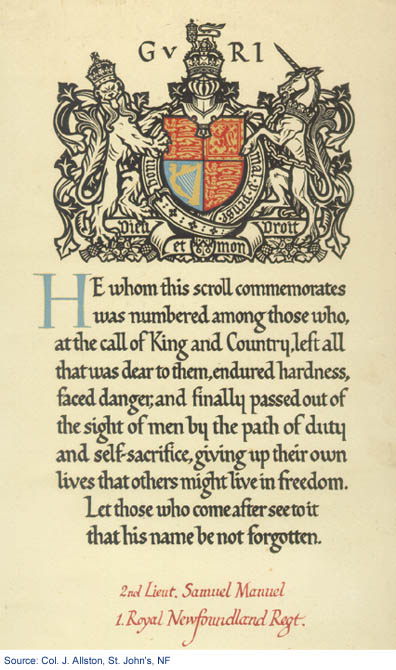 GvRI
Honi mal y pense
Dieu et mon Droit
HE whom this scroll commemorates
was numbered among those who,
at the call of King and Country, left all
that was dear to them, endured hardness,
faced danger, and finally passed out of
the sight of men by the path of duty
and self-sacrifice, giving up their own
lives that others might live in freedom.
Let those who come after see to it
that his name be not forgotten.
2nd Lieut. Samuel Manuel
1. Royal Newfoundland Regt.
Source: Col. J. Allston, St. John's, NF